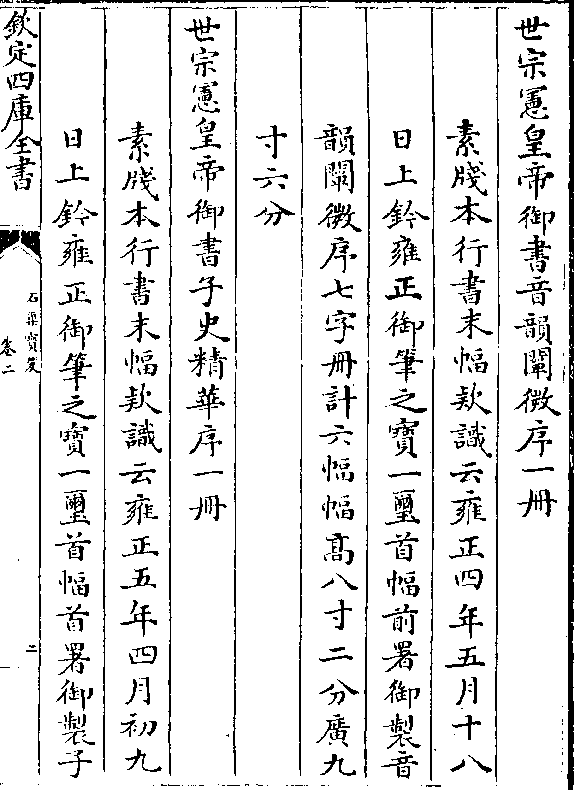 世宗憲皇帝御書音韻闡微序一冊
素牋本行書末幅欵識云雍正四年五月十八
日上鈐雍正御筆之寶一璽首幅前署御製音
韻闡微序七字冊計六幅幅髙八寸二分廣九
寸六分
世宗憲皇帝御書子史精華序一冊
素牋本行書末幅欵識云雍正五年四月初九
日上鈐雍正御筆之寶一璽首幅首署御製子
欽定四庫全書
石渠寳笈
卷二
二